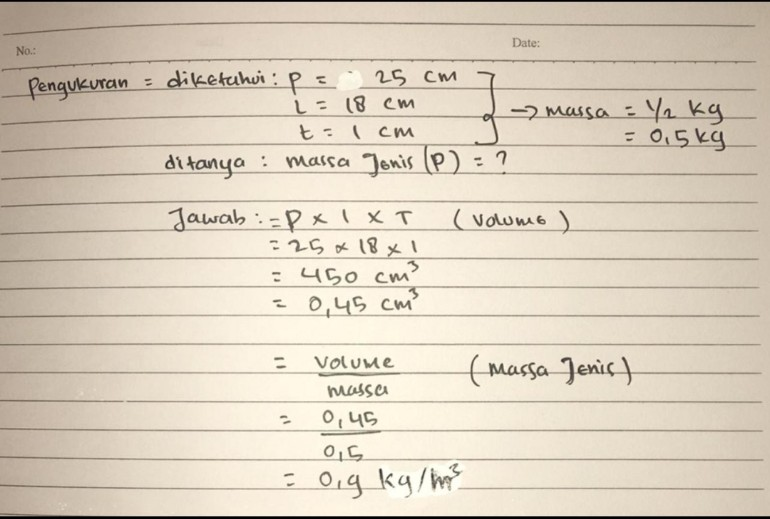 No.: Date:
Pengukuran = diketahui : P = 25 cm
L = 18 cm → massa = 1/2 kg
t = 1 cm = 0,5 kg
ditanya : massa Jenis (P) = ?
Jawab : = P x l x T (Volume)
= 25 x 18 x 1
= 450 cm³
= 0,45 cm³
= Volume (Massa Jenis)
massa
= 0,45
0,5
= 0,9 kg/m³